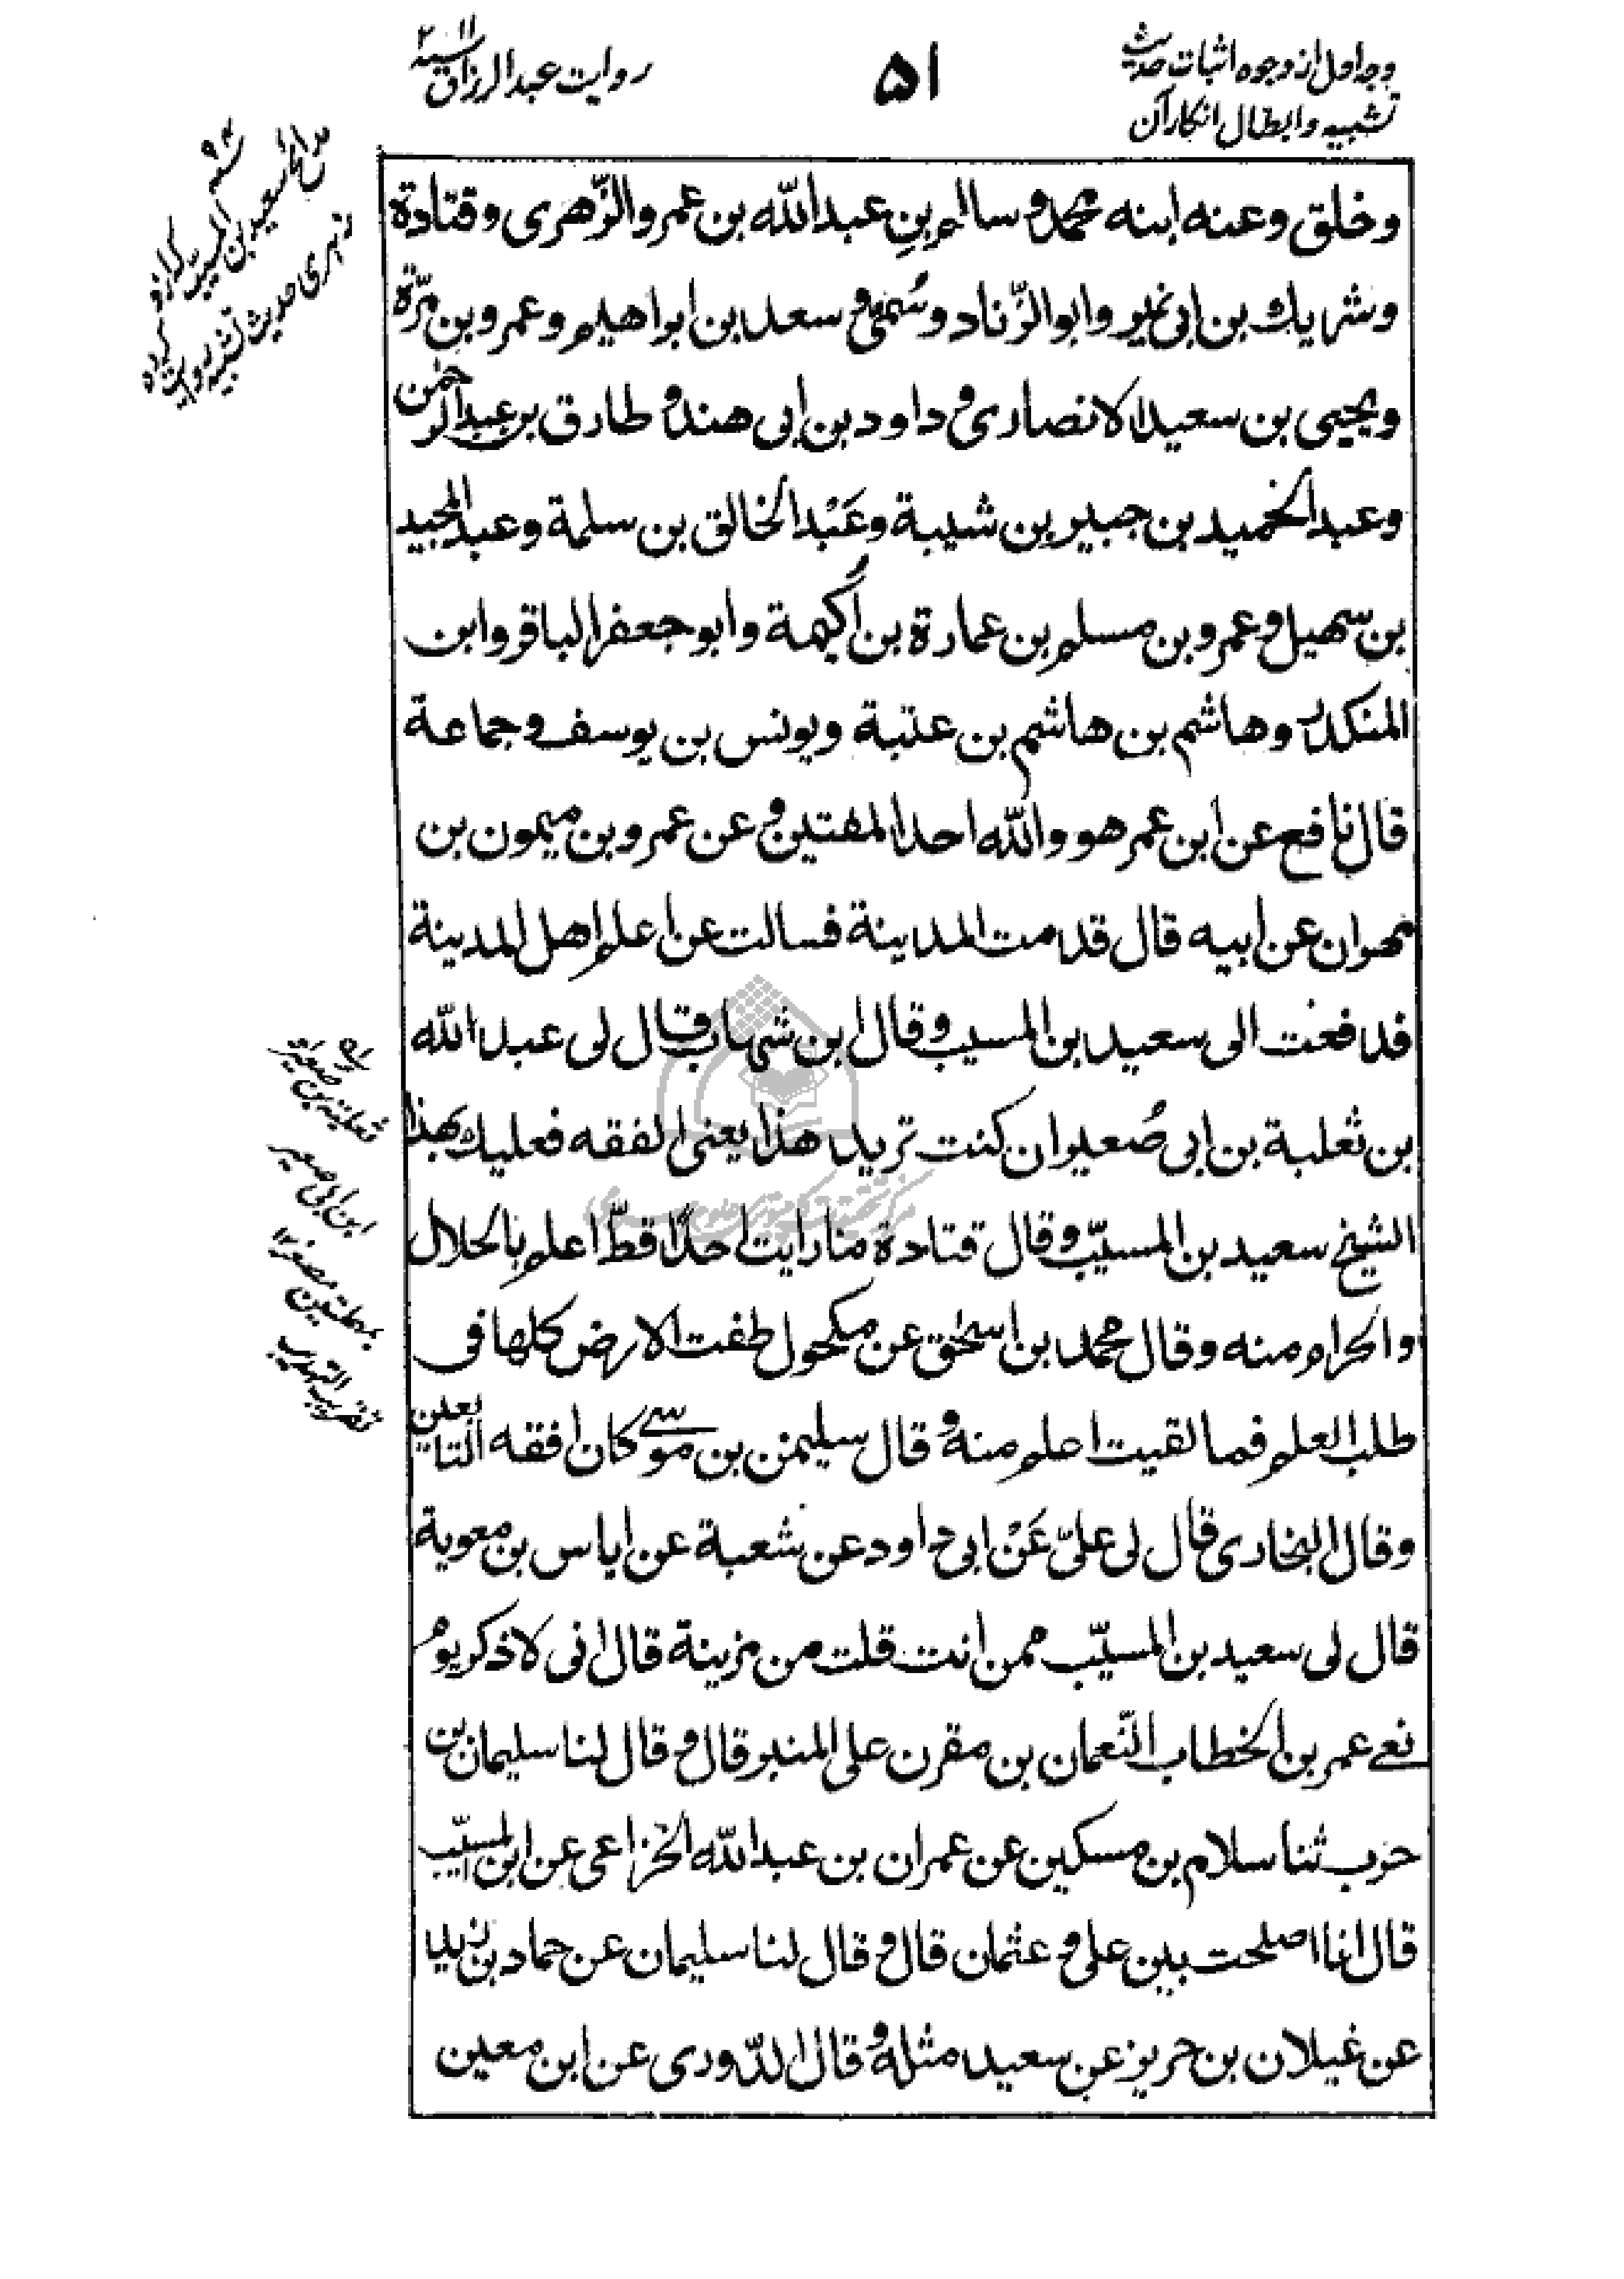 وجه اول از وجوه اثبات حديث
تشبيه وابطال انكار آن
۵۱
روايت عبدالرزاق ۲۱۱
وخلق وعنه ابنه محمد و سالم بن عبدالله بن عمر والزّهرى وقتادة
وشريك بن ابى نمير وابوالزّناد وسُمىّ و سعد بن ابراهيم وعمرو بن مرّة
ويحيى بن سعيد الانصارى و داود بن ابى هند و طارق بن عبدالرحمٰن
وعبد الحميد بن جبير بن شيبة وعَبْد الخالق بن سلمة وعبد المجيد
بن سهيل و عمرو بن مسلم بن عمارة بن اُكيمة وابوجعفر الباقر وابن
المنكدر وهاشم بن هاشم بن عتبة ويونس بن يوسف وجماعة
قال نافع عن ابن عمر هو والله احد المفتين و عن عمرو بن ميمون بن
مهران عن ابيه قال قدمت المدينة فسالت عن اعلم اهل المدينة
فدفعت الى سعيد بن المسيب وقال ابن شهاب قال لى عبد الله
بن ثعلبة بن ابى صُعير ان كنت تريد هذا يعنى الفقه فعليك بهذا
الشيخ سعيد بن المسيّب وقال قتادة ما رايت احدًا قطّ اعلم بالحلال
والحرام منه وقال محمد بن اسحٰق عن مكحول طفت الارض كلها فى
طلب العلم فما لقيت اعلم منه و قال سليمٰن بن موسےٰ كان افقه التابعين
وقال البخارى قال لى علىّ عَنْ ابى داود عن شعبة عن اياس بن معوية
قال لى سعيد بن المسيّب ممن انت قلت من مزينة قال انى لاذكر يوم
نعے عمر بن الخطاب النّعمان بن مقرن على المنبر قال و قال لنا سليمان بن
حرب ثنا سلام بن مسكين عن عمران بن عبدالله الخزاعى عن ابن المسيّب
قال انا اصلحت بين على و عثمان قال و قال لنا سليمان عن حماد بن زيد
عن غيلان بن جرير عن سعيد مثله و قال الدّورى عن ابن معين
سعيد بن المسيّب كه از و
زهرى حديث تشبيه روايت كرده
ثعلبة بن صعير
ابن ابى صعير
بمهملتين مصغر ۱۲
تقريب التهذيب